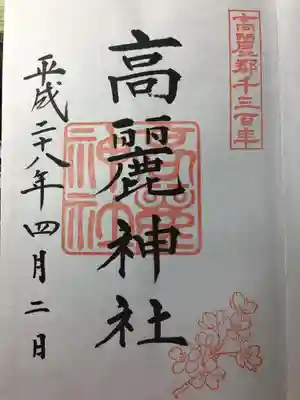 高麗郡千三百年
高麗神社
高麗神社
平成二十八年四月二日